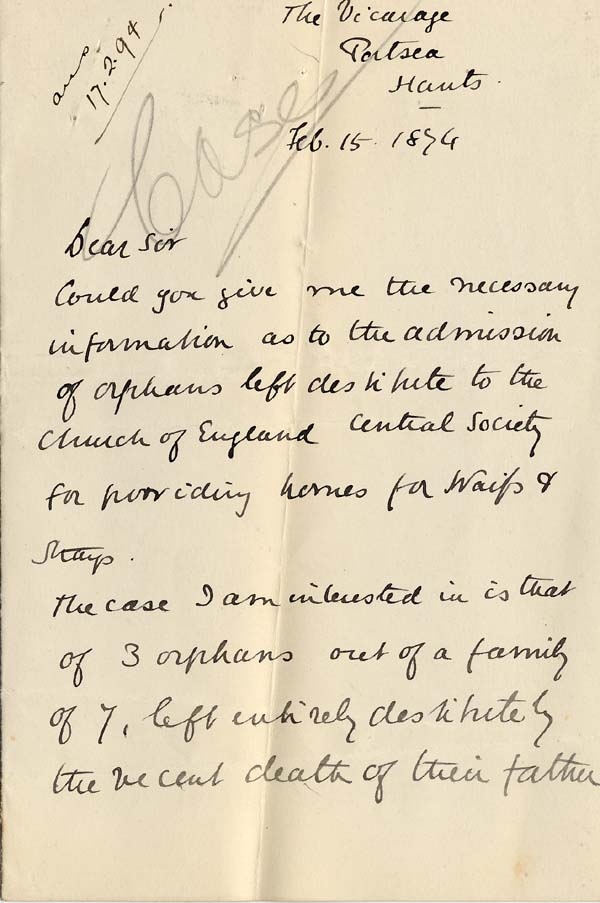 ans.
17.2.94
Case
The Vicarage
Portsea
Hants.
Feb. 15. 1894
Dear Sir
Could you give me the necessary
information as to the admission
of orphans left destitute to the
Church of England Central Society
for providing homes for Waifs &
Strays.
The case I am interested in is that
of 3 orphans out of a family
of 7, left entirely destitute by
the recent death of their father